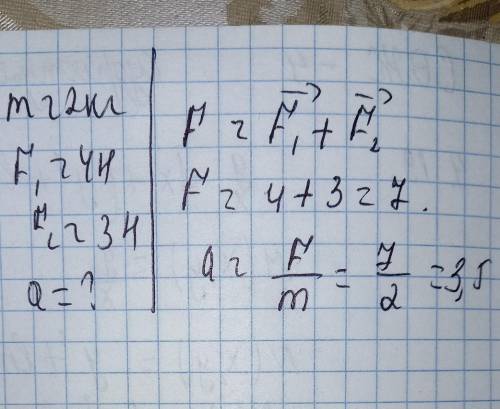 m = 2кг
F₁ = 4Н
F₂ = 3Н
a = ?
F = F⃗₁ + F⃗₂
F = 4 + 3 = 7.
a = F/m = 7/2 = 3,5